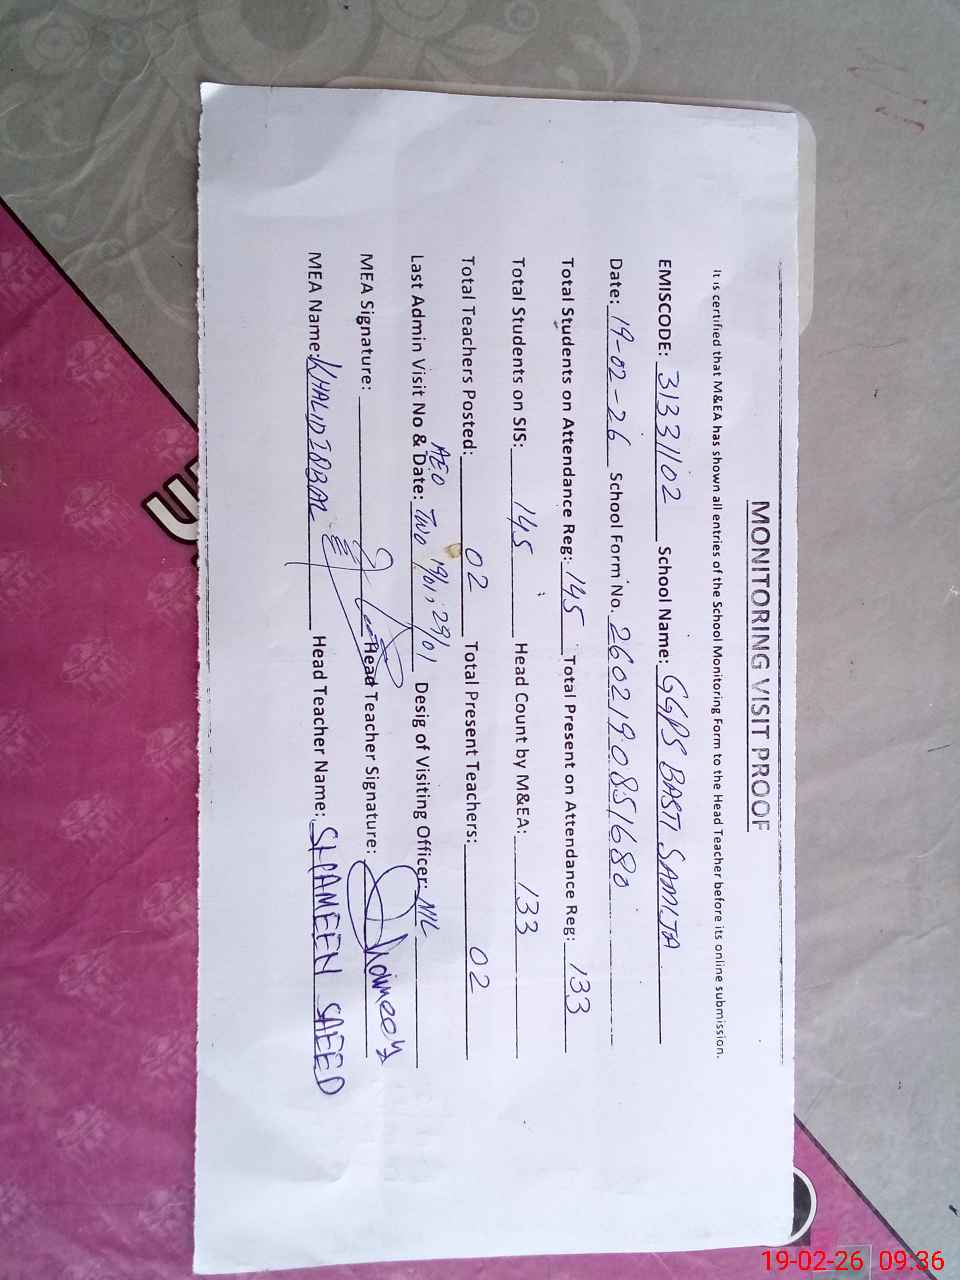 MONITORING VISIT PROOF
It is certified that M&EA has shown all entries of the School Monitoring Form to the Head Teacher before its online submission.
EMISCODE: 31331102 School Name: GGPS BASTI SAMIJA
Date: 19-02-26 School Form No. 2602190851680
Total Students on Attendance Reg: 145 Total Present on Attendance Reg: 133
Total Students on SIS: 145 Head Count by M&EA: 133
Total Teachers Posted: 02 Total Present Teachers: 02
AEO
Last Admin Visit No & Date: Two 19/01, 29/01 Desig of Visiting Officer: NIL
MEA Signature: Head Teacher Signature: Shameen
MEA Name: KHALID IQBAL Head Teacher Name: SHAMEEN SAEED
19-02-26 09:36